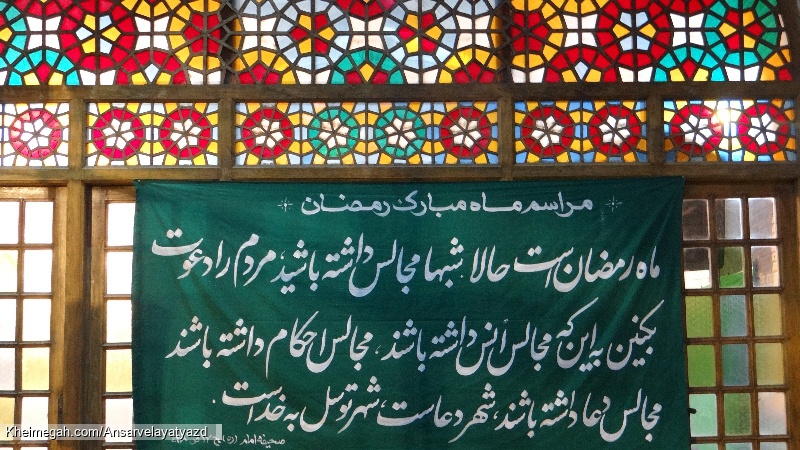 مراسم ماه مبارک رمضان
ماه رمضان است حالا شبها مجالس داشته باشید، مردم را دعوت
بکنین به این که مجالس اُنس داشته باشند، مجالس احکام داشته باشند
مجالس دعا داشته باشند، شهر دعاست، شهر توسل به خداست.
صحیفه امام
Kheimegah.com/Ansarvelayatyazd